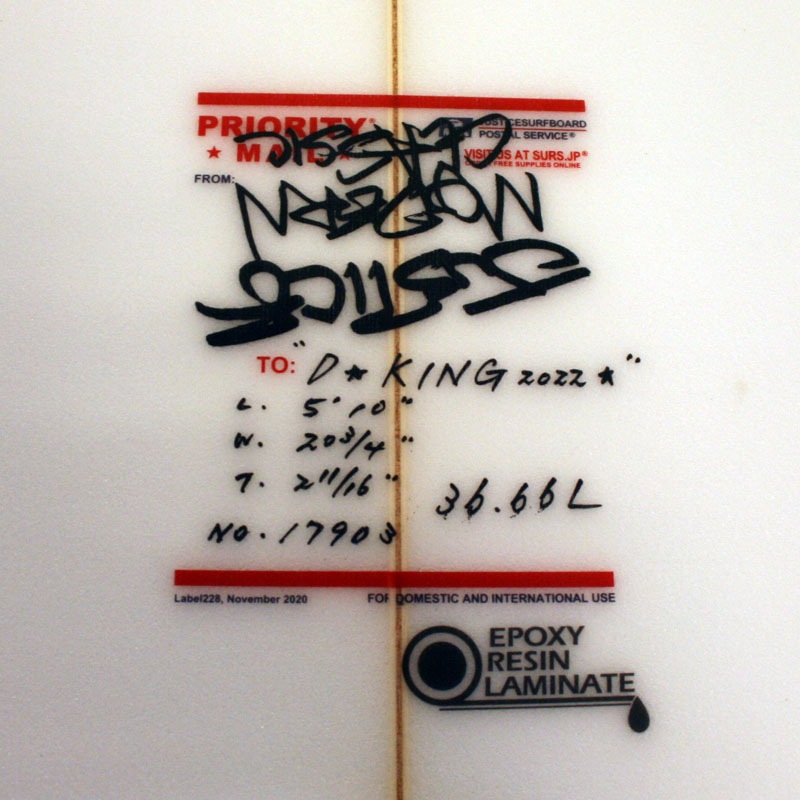 PRIORITY®
★ MAIL ★
JUSTICESURFBOARD
POSTAL SERVICE®
VISIT US AT SURS.JP®
FREE SUPPLIES ONLINE
FROM:
JUSTICE
TO: "D★KING 2022★"
L. 5'10"
W. 20 3/4"
T. 2 11/16" 36.66L
NO. 17903
Label228, November 2020
FOR DOMESTIC AND INTERNATIONAL USE
EPOXY
RESIN
LAMINATE